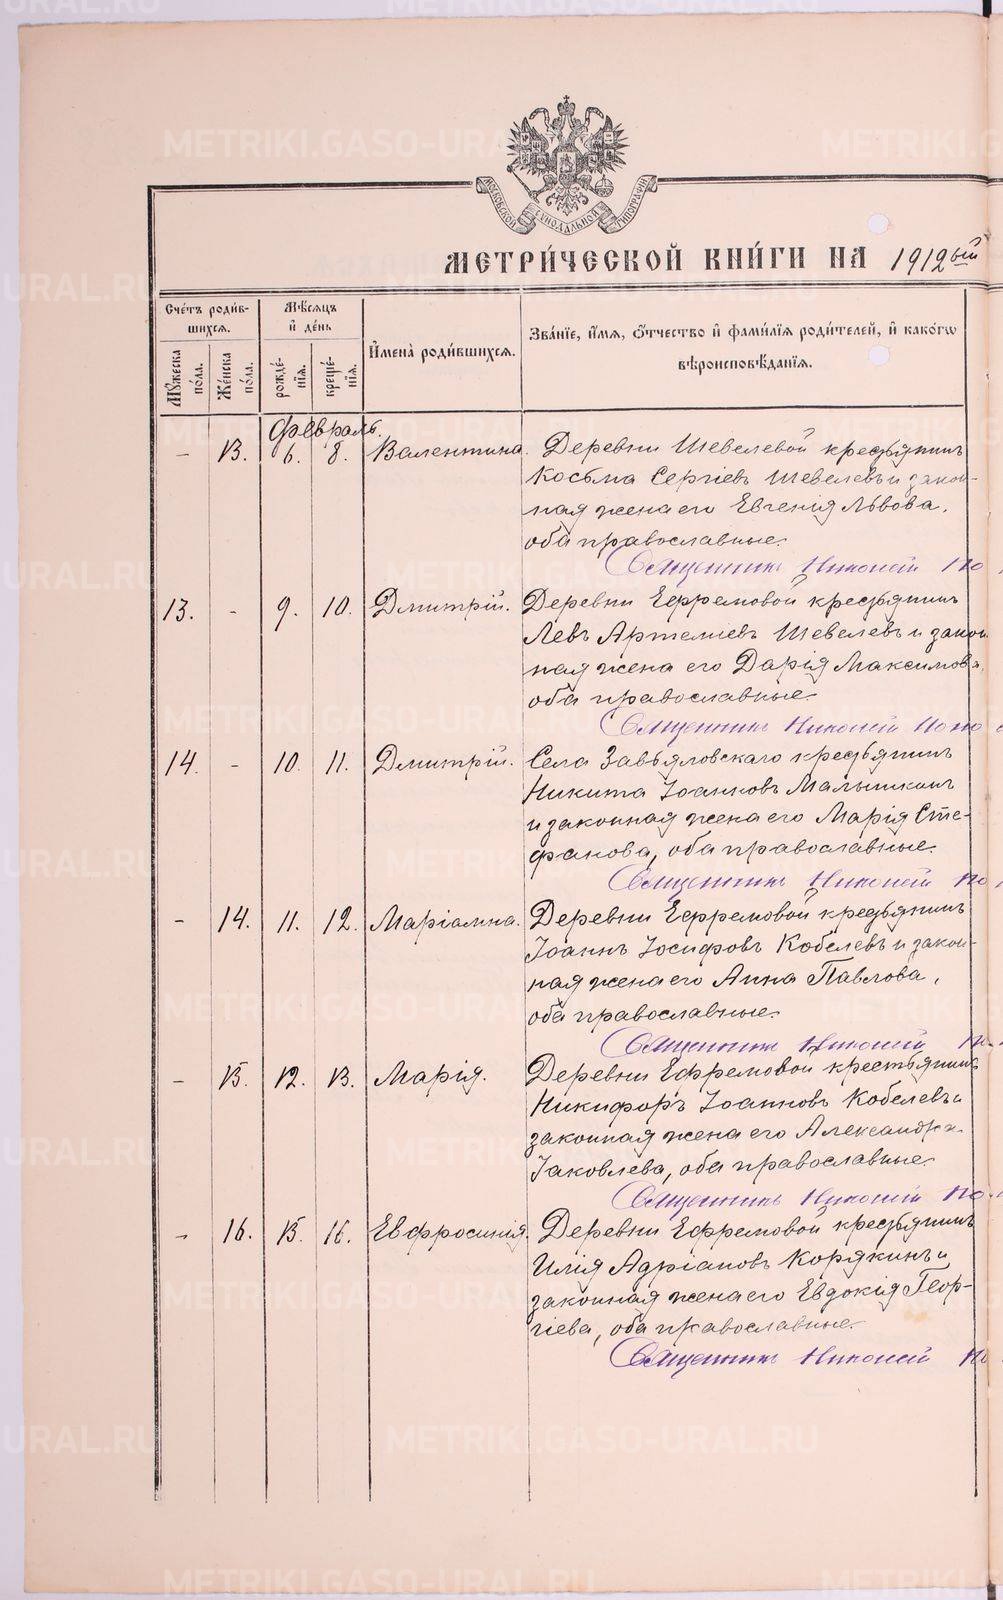 МОСКОВСКОЙ СѴНОДАЛЬНОЙ ТИПОГРАФІИ
МЕТРИ́ЧЕСКОЙ КНИ́ГИ НА 1912ый
Сче́тъ роди́в-
шихсѧ.
Мꙋ́жеска по́ла.
Же́нска по́ла.
Мѣ́сѧцъ и де́нь
рожде́-
нїѧ.
креще́-
нїѧ.
Имена̀ роди́вшихсѧ.
Зва́нїе, и́мѧ, о́тчество и фами́лїѧ роди́телей, и како́гѡ
вѣроисповѣ́данїѧ.
Февраль.
- 13. 6. 8. Валентина. Деревни Шевелевой крестьянинъ
Косьма Сергіевъ Шевелевъ и закон-
ная жена его Евгенія Львова,
оба православные.
Священникъ Николай По
13. - 9. 10. Дмитрій. Деревни Ефремовой крестьянинъ
Левъ Артемиевъ Шевелевъ и закон
ная жена его Дарія Максимова,
оба православные.
Священникъ Николай Поно
14. - 10. 11. Дмитрій. Села Завьяловскаго крестьянинъ
Никита Іоанновъ Малышкинъ
и законная жена его Марія Сте-
фанова, оба православные.
Священникъ Николай По
- 14. 11. 12. Маріамна. Деревни Ефремовой крестьянинъ
Іоаннъ Іосифовъ Кобелевъ и закон-
ная жена его Анна Павлова,
оба православные.
Священникъ Николай По
- 15. 12. 13. Марія. Деревни Ефремовой крестьянинъ
Никифоръ Іоанновъ Кобелевъ и
законная жена его Александра
Іаковлева, оба православные.
Священникъ Николай По
- 16. 15. 16. Евфросинія. Деревни Ефремовой крестьянинъ
Илія Адріановъ Корякинъ и
законная жена его Евдокія Геор-
гіева, оба православные.
Священникъ Николай По
METRIKI.GASO-URAL.RU